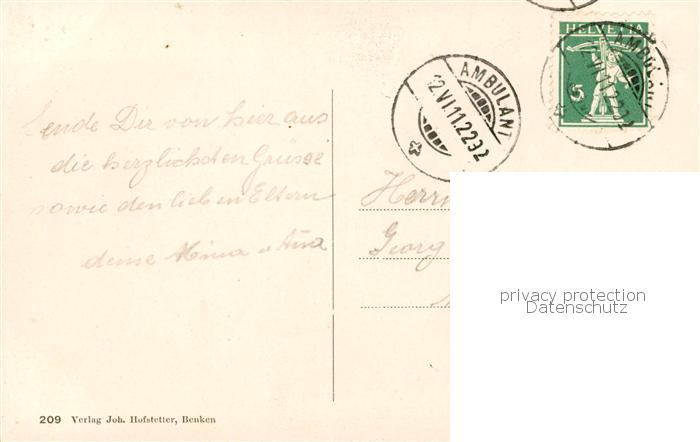 HELVETIA
5
AMBULANT
12.VI.11.22
AMBULANT
Sende Dir von hier aus
die herzlichsten Grüsse
sowie den lieben Eltern
deine Mina u
Herrn
Georg
privacy protection
Datenschutz
209 Verlag Joh. Hofstetter, Benken